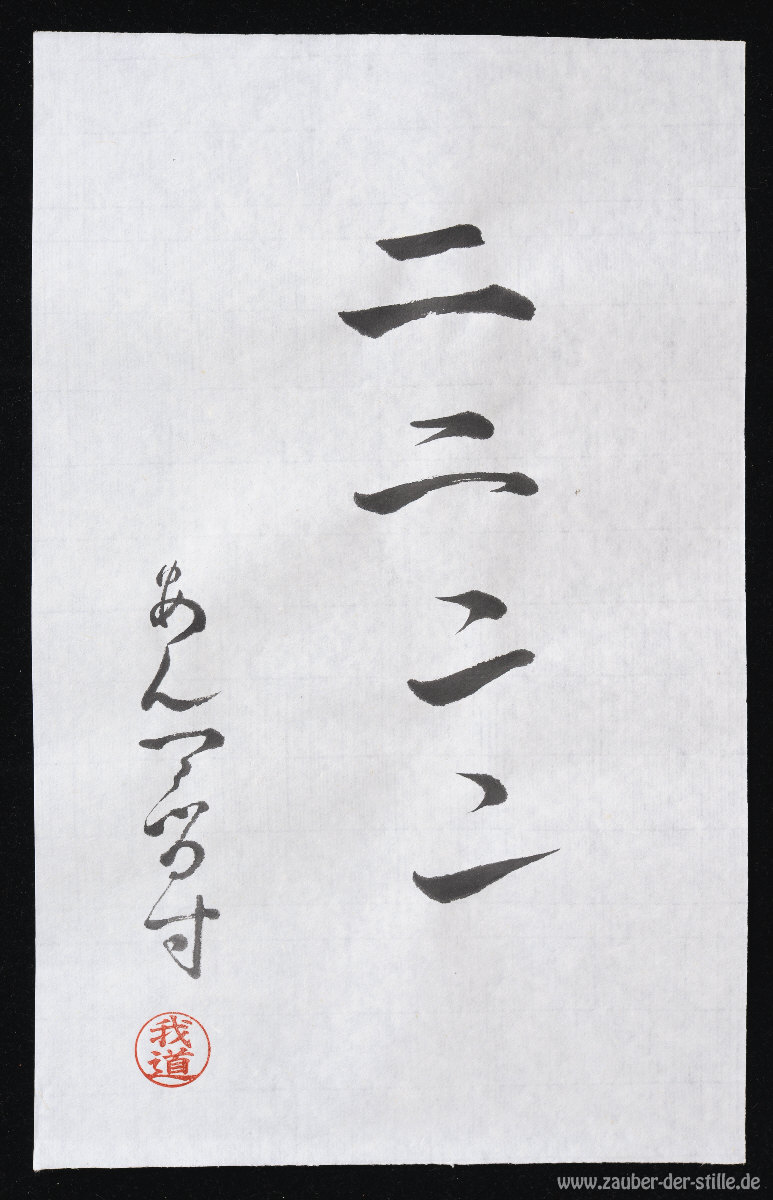 二二二二
我道
www.zauber-der-stille.de